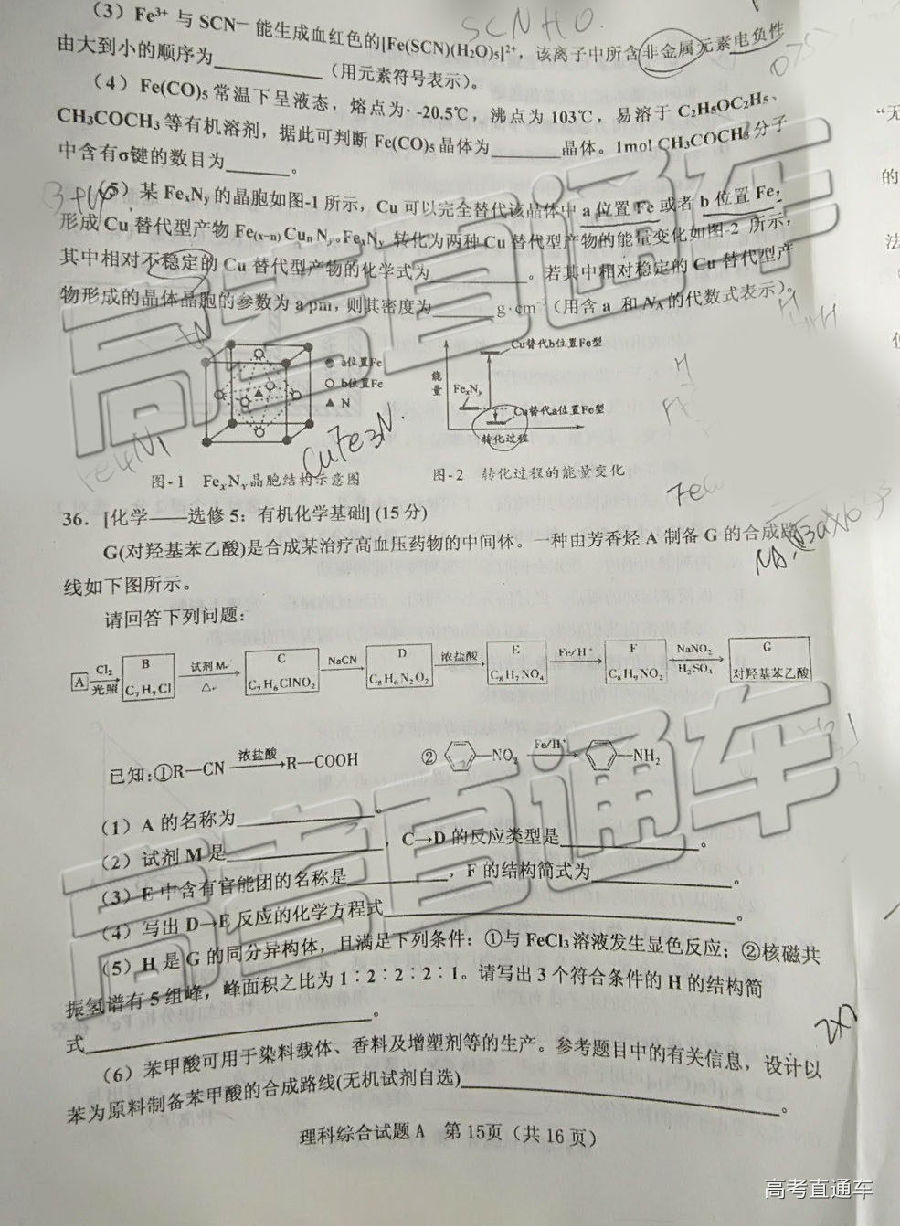 SCNHO
(3)Fe³⁺与SCN⁻能生成血红色的[Fe(SCN)(H₂O)₅]²⁺,该离子中所含非金属元素电负性
由大到小的顺序为__________(用元素符号表示)。
(4)Fe(CO)₅常温下呈液态,熔点为-20.5℃,沸点为103℃,易溶于C₂H₅OC₂H₅、
CH₃COCH₃等有机溶剂,据此可判断Fe(CO)₅晶体为______晶体。1mol CH₃COCH₃分子
中含有σ键的数目为______。
(5)某FeₓNᵧ的晶胞如图-1所示,Cu可以完全替代该晶体中a位置Fe或者b位置Fe,
形成Cu替代型产物Fe₍ₓ₋ₙ₎CuₙNᵧ。FeₓNᵧ转化为两种Cu替代型产物的能量变化如图-2所示,
其中相对不稳定的Cu替代型产物的化学式为__________。若其中相对稳定的Cu替代型产
物形成的晶体晶胞的参数为a pm,则其密度为______g·cm⁻³(用含a 和Nᴀ的代数式表示)。
a位置Fe
b位置Fe
N
能量
Cu替代b位置Fe型
FeₓNᵧ
Cu替代a位置Fe型
转化过程
Fe4N1
CuFe3N
图-1 FeₓNᵧ晶胞结构示意图
图-2 转化过程的能量变化
36.[化学——选修5:有机化学基础](15分)
G(对羟基苯乙酸)是合成某治疗高血压药物的中间体。一种由芳香烃A制备G的合成路
线如下图所示。
请回答下列问题:
A Cl₂ 光照 B C₇H₇Cl 试剂M △ C C₇H₆ClNO₂ NaCN D C₈H₆N₂O₂ 浓盐酸 E C₈H₇NO₄ Fe/H⁺ F C₈H₉NO₂ NaNO₂ H₂SO₄ G 对羟基苯乙酸
已知:①R—CN 浓盐酸→R—COOH ② —NO₂ Fe/H⁺→ —NH₂
(1)A的名称为____________。
(2)试剂M是____________,C→D的反应类型是____________。
(3)E中含有官能团的名称是__________,F的结构简式为____________。
(4)写出D→E反应的化学方程式______________________________。
(5)H是G的同分异构体,且满足下列条件:①与FeCl₃溶液发生显色反应;②核磁共
振氢谱有5组峰,峰面积之比为1∶2∶2∶2∶1。请写出3个符合条件的H的结构简
式____________________。
(6)苯甲酸可用于染料载体、香料及增塑剂等的生产。参考题目中的有关信息,设计以
苯为原料制备苯甲酸的合成路线(无机试剂自选)______________________________。
理科综合试题A 第15页(共16页)
高考直通车
高考直通车
高考直通车
“无
的
法